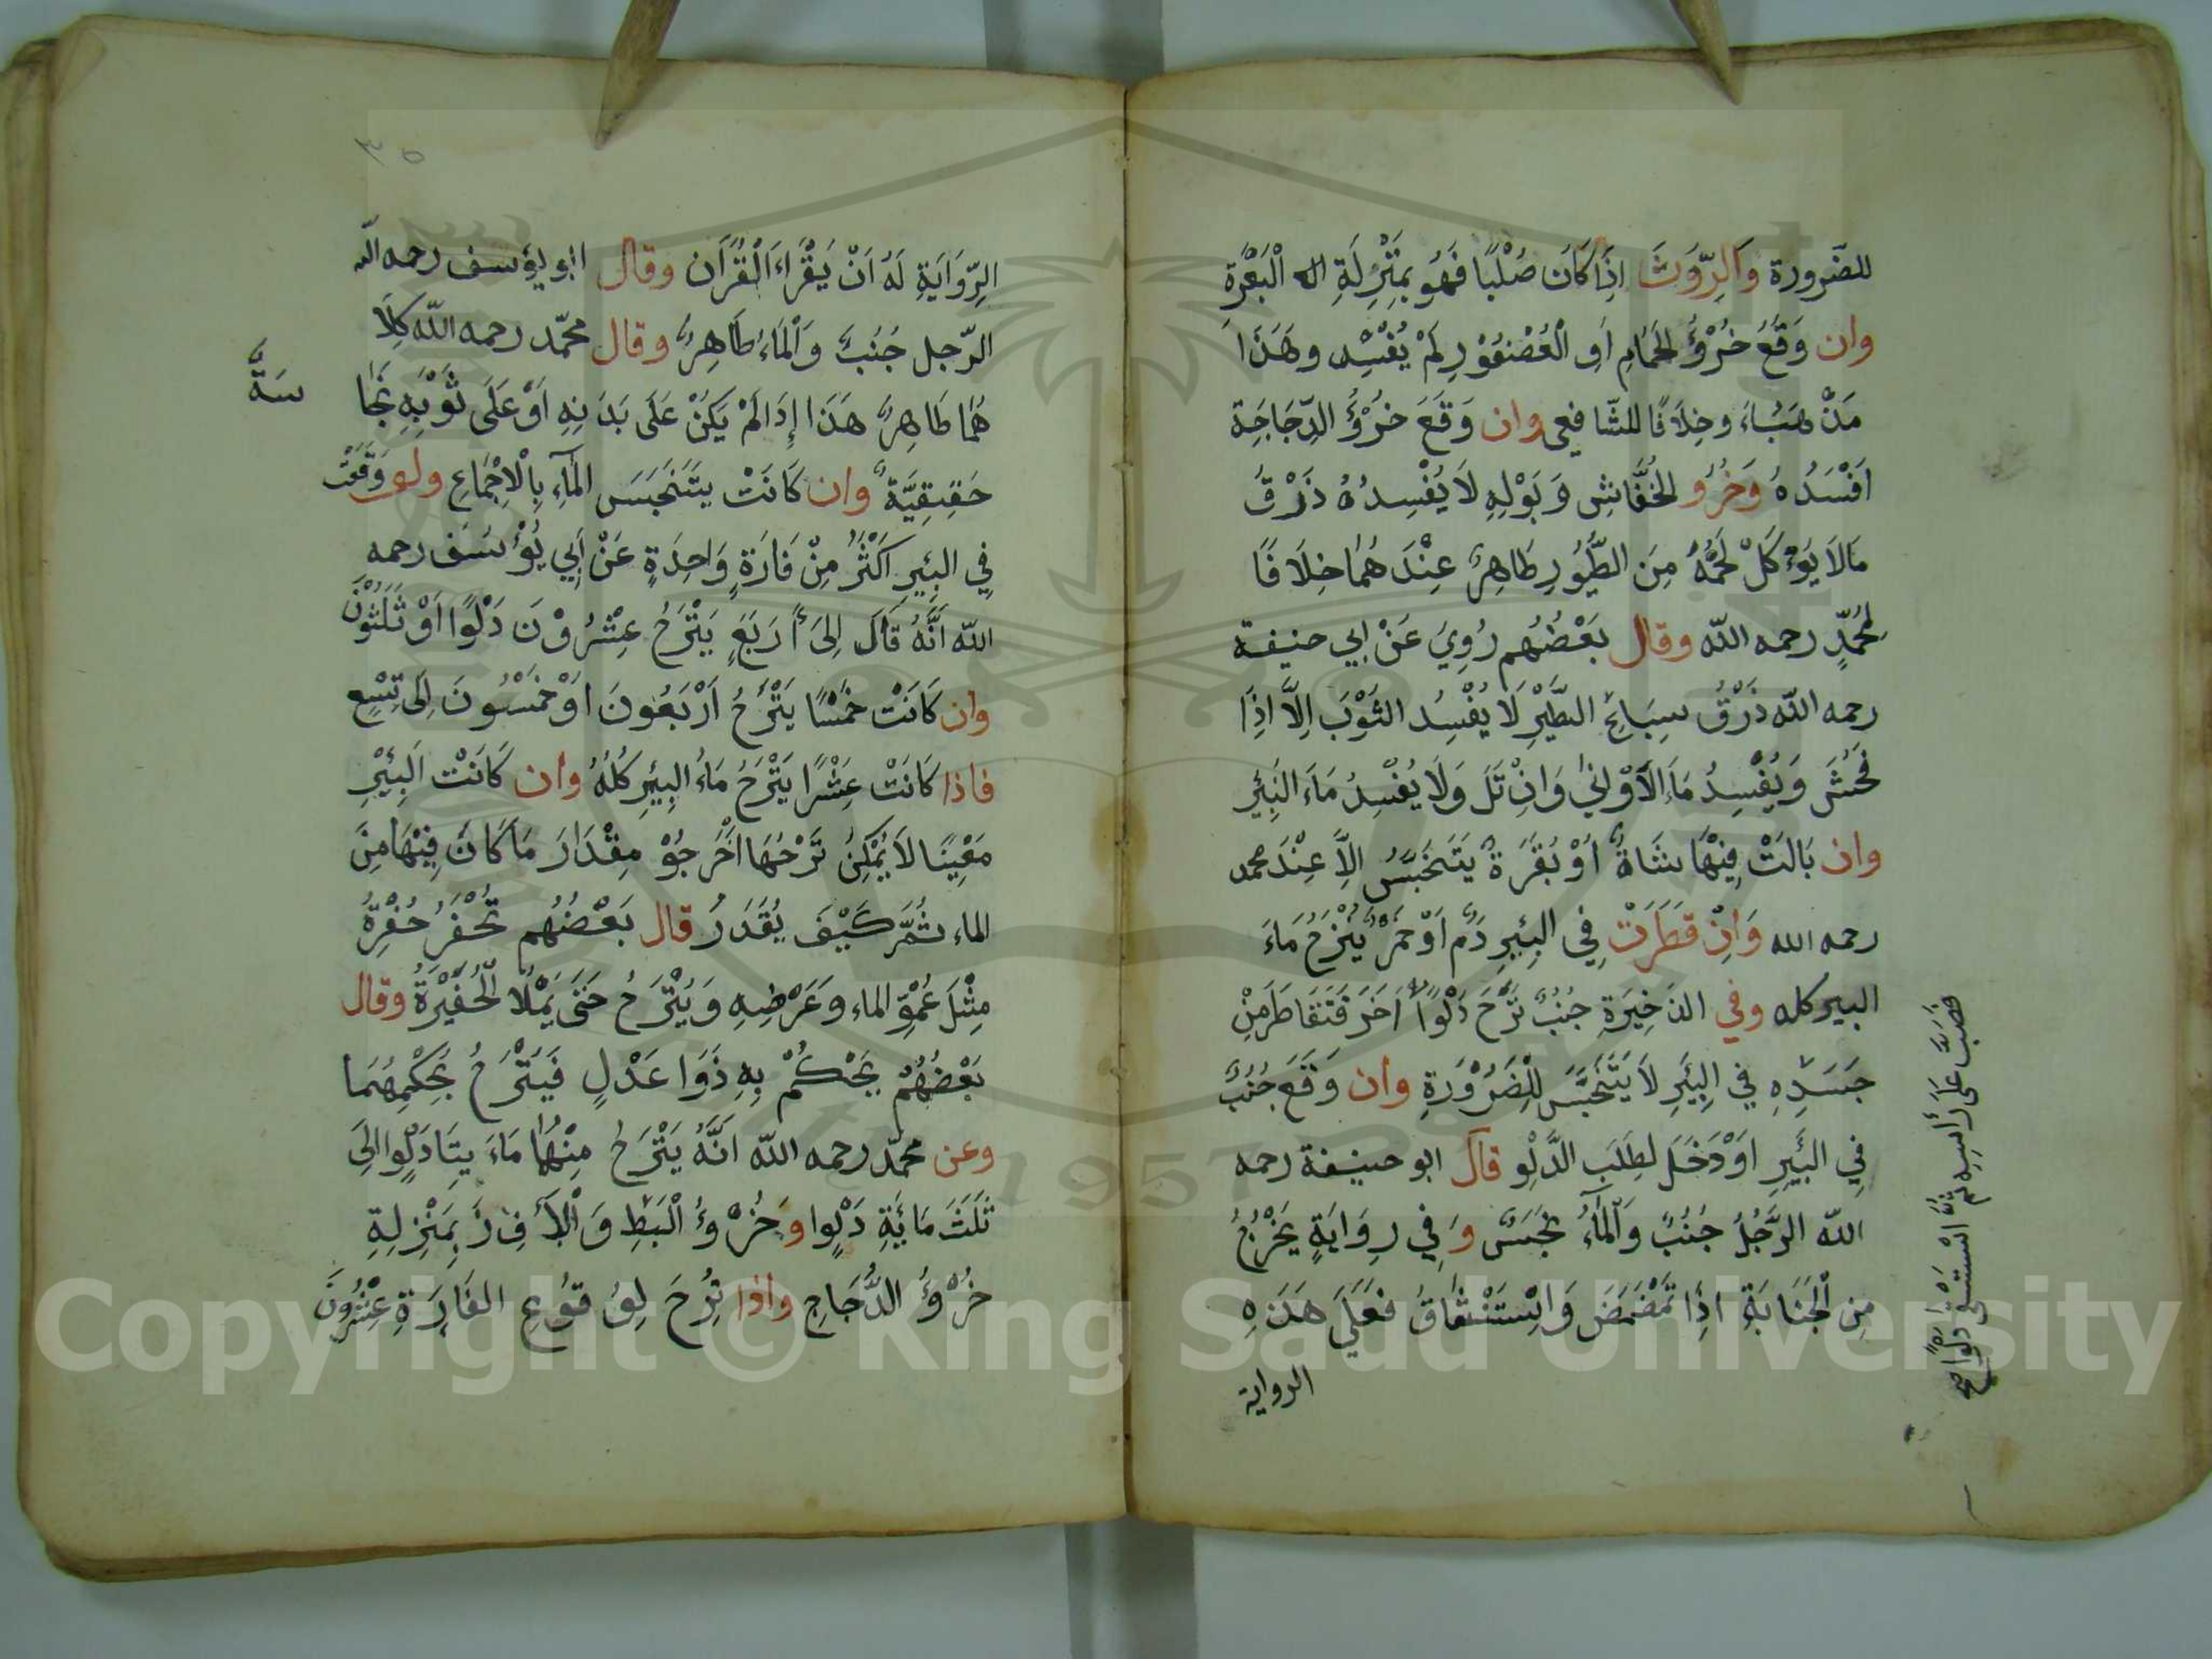 للضَرورة وَالرِّوَثَ اِذَا كَانَ صُلْبًا فَهُو بِمَنْزِلَةِ الـ الْبَعْرَةِ
وان وَقَعَ خُرْؤُ الحَمَامِ اَوِ الْعُصْفُوْرِ لَمْ يُفْسِد وهَذَا
مَذْهَبُنَا وخِلَافًا للشّافعى وان وَقَعَ خُرْؤُ الدِّجَاجَةِ
اَفْسَدُهُ وَخَرُؤ الخُفَّاشِ وَبَوْلِهِ لَا يُفْسِدُهُ ذَرْقُ
مَا لَا يُؤْكَلْ لَحْمُهُ مِنَ الطُّيُورِ طَاهِرٌ عِنْدَ هُمَا خِلَافًا
لمُحَمَّدٍ رحمه اللّه وقال بَعْضُهُم رُوِيَ عَنْ ابي حنيفة
رحمه اللّه ذَرْقُ سِبَاعِ الطَّيْرِ لَا يُفْسِدُ الثَوْبَ اِلَّا اذَا
فَحُشَ وَيُفْسِدُ مَاءَ الاَوْانِي وَاِنْ قَلَ وَلَا يُفْسِدُ مَاءَ البَئِرِ
وان بَالَتْ فِيْهَا شَاةٌ اَوْ بُقَرَةٌ يَتَنَجَّسُ اِلَّا عِنْدَ محمد
رحمه الله وَاِنْ قَطَرَتْ فِي البِئِرِ دَمٌ اَوْ خَمْرٌ يُنْزَحُ مَاءَ
البير كله وفي الذَخِيَرةِ جُنُبٌ نَزَحَ دَلْوًا اَخَرَ فَتَقَاطَرَ مِنْ
جَسَدِهِ فِي البِئَرِ لَا يَتَنَجَّسَ لِلْضَرُوْرَةِ وان وَقَعَ جُنُبٌ
فِي البِئَرِ اَوْ دَخَلَ لِطَلَبِ الدَّلْوِ قال ابو حنيفة رحمه
اللّه الرَّجُلُ جَنُبٌ وَالمَاءُ نَجَسٌ وَفِي رِوَايَةٍ يَخْرُجُ
مِن الْجَنَابَةِ اِذَا تَمَضْمَضَ وَاسْتَنْشَاقُ فعَلَى هَذَهِ
الرواية
فصَبَّ عَلَى رَأْسِهِ ثُمَّ اسْتَسْقَى دلوا صح
الرِّوَايَةِ لَهُ اَنْ يَقْرَاءَ الْقُرْاَن وقال ابو يؤسف رحمه اللّه
الرّجل جُنُبٌ وَالْمَاءُ طَاهِرٌ وقال محمّد رحمه اللّه كِلَا
هُمَا طَاهِرٌ هَذَا اِذَا لَمْ يَكُنْ عَلَى بَدَنِهِ اَوْ عَلَى ثَوْبِهِ نَجَا
سَةٌ
حَقِيِقِيَّةٌ وان كَانَتْ يتَنَجَّسَ المَآءِ بِالْاِجْمَاعِ ولو وَقَعَتْ
فِي البَئِرِ اَكْثَرُ مِنْ فَارَةٍ وَاحِدَةٍ عَنْ اَبِي يُؤْسَف رحمه
اللّه اَنَّهُ قَالَ اِلَىَ اَرَبَعِ يَنْزَحُ عِشْرُوْنَ دَلْوًا اَوْ ثَلَثُوْنَ
وان كَانَتْ خَمْسًا يَنْزَحُ اَرْبَعُونَ اوْ خَمْسُونَ اِلَى تِسْعٍ
فاذا كَانَتْ عِشْرًا يَنْزَحُ مَاءُ البِئيِر كُلُهُ وان كَانَتْ البِئْرِ
مَعِيْنًا لَا يُمْكِنُ نَزْحُهَا اَخْرَجُوْ مِقْدَارَ مَا كَانَ فِيْهَا مِنَ
الماء ثُمَّ كَيْفَ يُقَدَرُ قال بَعْضُهُم تُحْفَرُ حُفْرِةُ
مِثْلَ عُمْقِ الماء وَعَرْضِهِ وَيُنْزَحُ حَتَى يَمْلُاُ الْحُفَيْرَةُ وقال
بَعْضُهُمْ يَحْكُمْ بِهِ ذَوَا عَدْلٍ فَيَنْزَحُ بَحِكْمِهُمَا
وعن محمّد رحمه اللّه اَنَّهُ يَنْزَحُ مِنْهَا مَاءَ يتَا دَلْوٍا الِىَ
ثَلَثَ مَائِةِ دَلْوٍا وَخُرْؤُ الْبَطِ وَالْأَوِزَّ بِمَنْزِلةِ
خُرْؤُ الدُّجَاجِ واذا نُزِحَ لِوُقُوُعِ الفَارَةِ عِشْرُوْنَ
٣٥
Copyright © King Saud University
1957